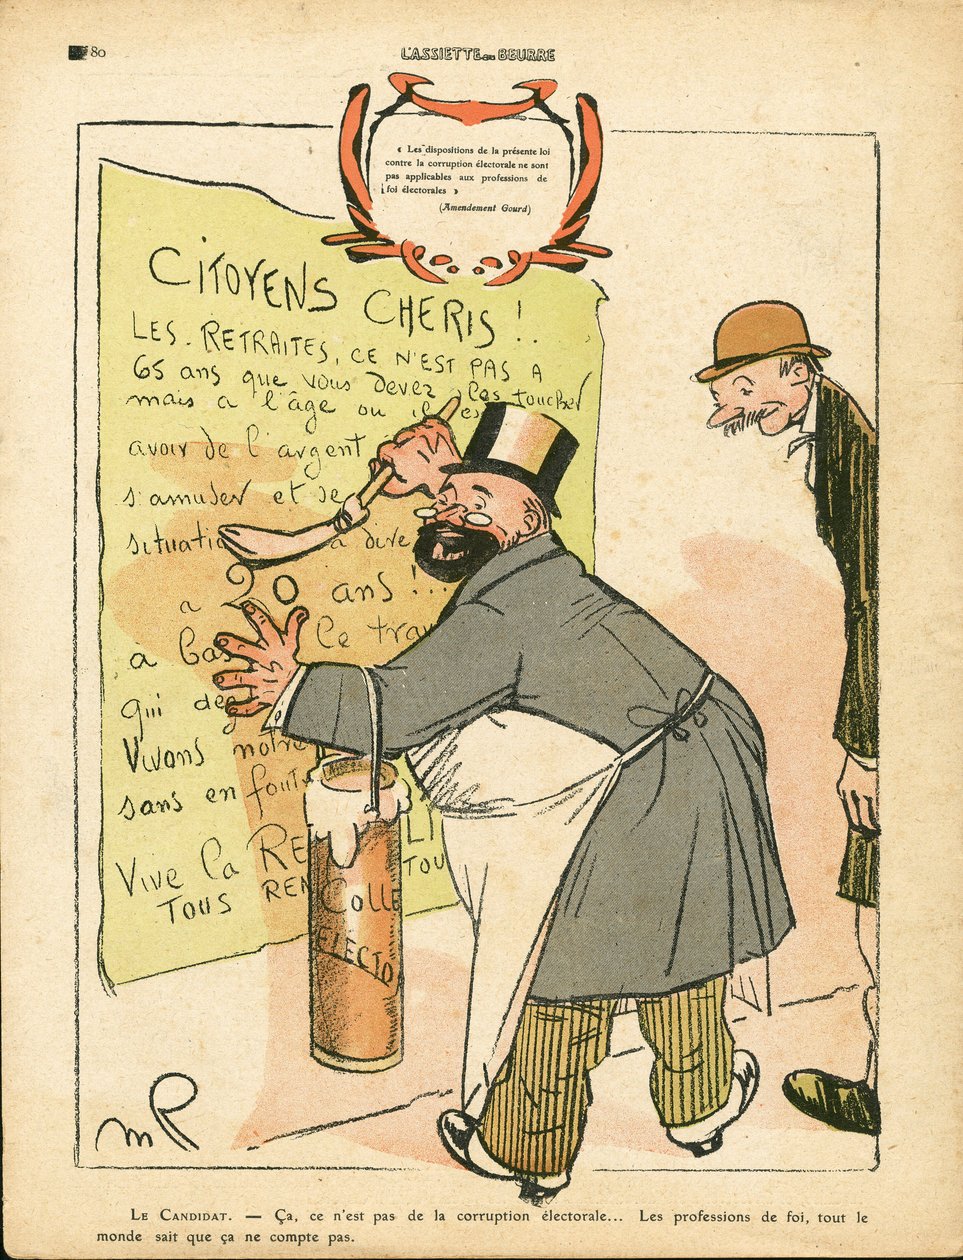 80
L'ASSIETTE AU BEURRE
« Les dispositions de la présente loi
contre la corruption électorale ne sont
pas applicables aux professions de
foi électorales »
(Amendement Gourd)
CITOYENS CHERIS !..
LES RETRAITES, CE N'EST PAS A
65 ans que vous devez les toucher
mais a l'âge ou il es
avoir de l'argent
s'amuser et se
situatio a dire
a 20 ans !..
a bas le trav
qui deg
Vivons notre
sans en foutr
Vive la RE LI
TOUS REN TOU
COLLE
ELECTO
MR
LE CANDIDAT. — Ça, ce n'est pas de la corruption électorale... Les professions de foi, tout le
monde sait que ça ne compte pas.